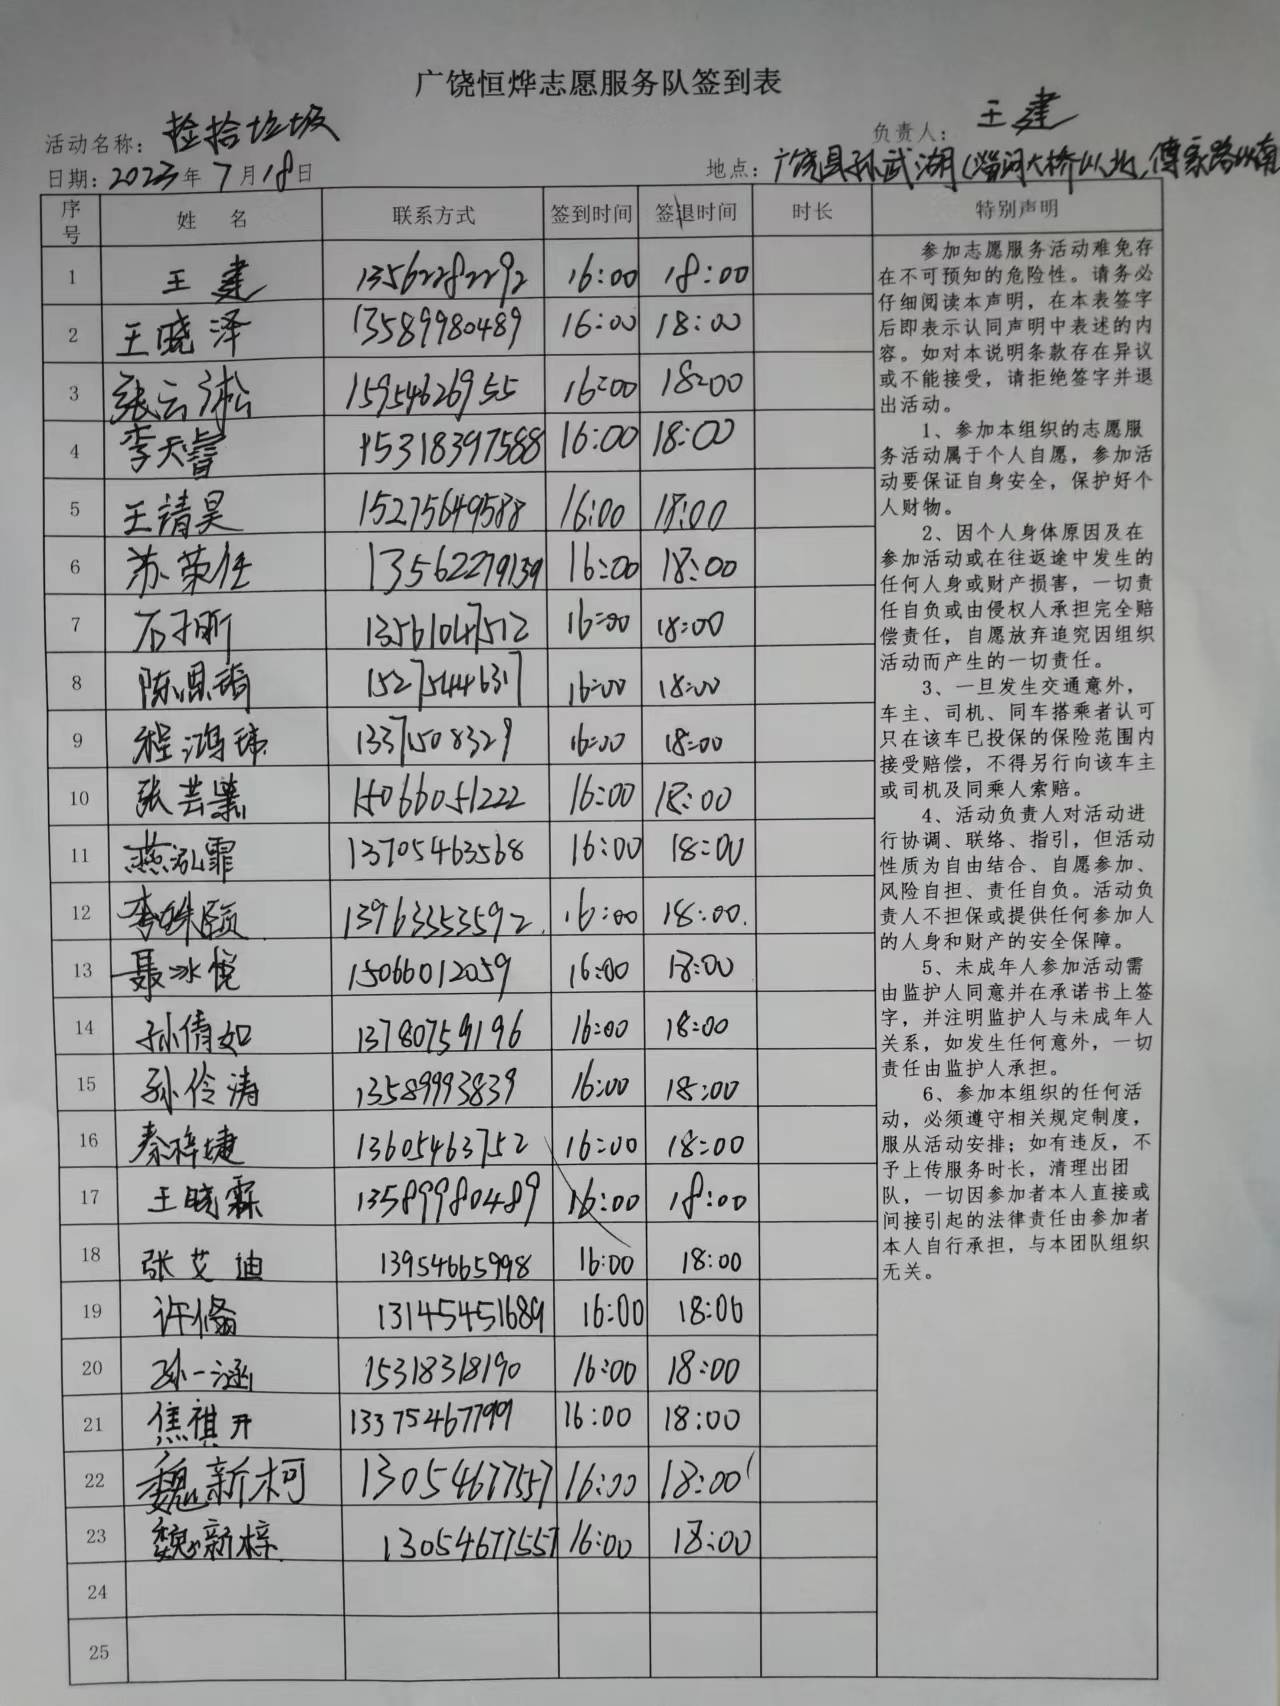 广饶恒烨志愿服务队签到表
活动名称：捡拾垃圾 负责人：王建
日期：2023年7月18日 地点：广饶县孙武湖（淄河大桥以北，傅家路以南
序号 姓名 联系方式 签到时间 签退时间 时长 特别声明
1 王建 13562282292 16:00 18:00
2 王晓泽 13589980489 16:00 18:00
3 张云淞 15954626955 16:00 18:00
4 李天睿 15318397588 16:00 18:00
5 王清昊 15275649588 16:00 18:00
6 苏荣任 13562279139 16:00 18:00
7 石子昕 13561047512 16:00 18:00
8 陈思 15275446317 16:00 18:00
9 程鸿玮 13371508329 16:00 18:00
10 张芸 15066051222 16:00 18:00
11 燕泓霏 13705463568 16:00 18:00
12 李姝颐 13963353592 16:00 18:00
13 聂冰悦 15066012059 16:00 18:00
14 孙倩如 13780759196 16:00 18:00
15 孙伶涛 13589993839 16:00 18:00
16 秦梓婕 13605463752 16:00 18:00
17 王晓霖 13589980489 16:00 18:00
18 张艾迪 13954665998 16:00 18:00
19 许 13145451689 16:00 18:00
20 孙一涵 15318318190 16:00 18:00
21 焦祺开 13375467799 16:00 18:00
22 魏新柯 13054677557 16:00 18:00
23 魏新梓 13054677557 16:00 18:00
24
25
参加志愿服务活动难免存
在不可预知的危险性。请务必
仔细阅读本声明，在本表签字
后即表示认同声明中表述的内
容。如对本说明条款存在异议
或不能接受，请拒绝签字并退
出活动。
1、参加本组织的志愿服
务活动属于个人自愿，参加活
动要保证自身安全，保护好个
人财物。
2、因个人身体原因及在
参加活动或在往返途中发生的
任何人身或财产损害，一切责
任自负或由侵权人承担完全赔
偿责任，自愿放弃追究因组织
活动而产生的一切责任。
3、一旦发生交通意外，
车主、司机、同车搭乘者认可
只在该车已投保的保险范围内
接受赔偿，不得另行向该车主
或司机及同乘人索赔。
4、活动负责人对活动进
行协调、联络、指引，但活动
性质为自由结合、自愿参加、
风险自担、责任自负。活动负
责人不担保或提供任何参加人
的人身和财产的安全保障。
5、未成年人参加活动需
由监护人同意并在承诺书上签
字，并注明监护人与未成年人
关系，如发生任何意外，一切
责任由监护人承担。
6、参加本组织的任何活
动，必须遵守相关规定制度，
服从活动安排；如有违反，不
予上传服务时长，清理出团
队，一切因参加者本人直接或
间接引起的法律责任由参加者
本人自行承担，与本团队组织
无关。